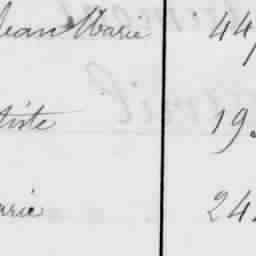 Jean Marie 44
tiste 19
arie 24